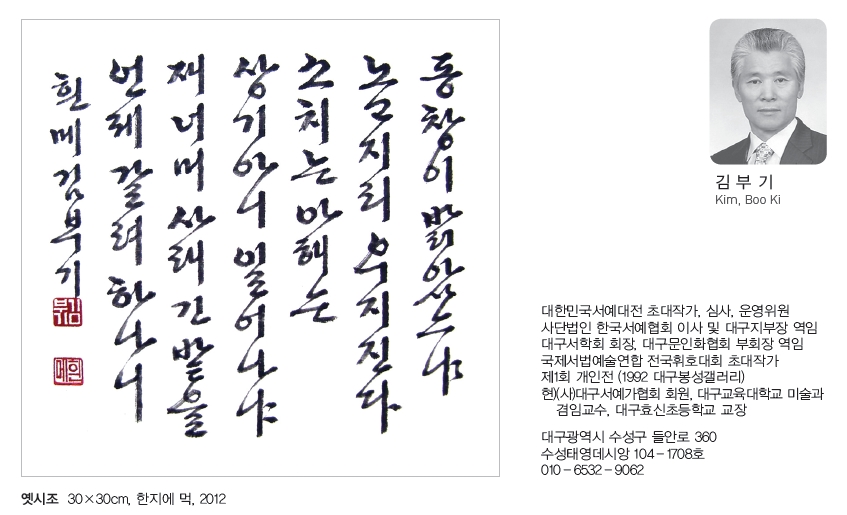 동창이 밝았느냐
노고지리 우지진다
소치는 아해는
상기아니 일어나냐
재너머 사래긴 밭을
언제 갈려 하나니
흰메 김부기
옛시조 30×30cm, 한지에 먹, 2012
김 부 기
Kim, Boo Ki
대한민국서예대전 초대작가, 심사, 운영위원
사단법인 한국서예협회 이사 및 대구지부장 역임
대구서학회 회장, 대구문인화협회 부회장 역임
국제서법예술연합 전국휘호대회 초대작가
제1회 개인전 (1992 대구봉성갤러리)
현)(사)대구서예가협회 회원, 대구교육대학교 미술과
겸임교수, 대구효신초등학교 교장
대구광역시 수성구 들안로 360
수성태영데시앙 104-1708호
010-6532-9062